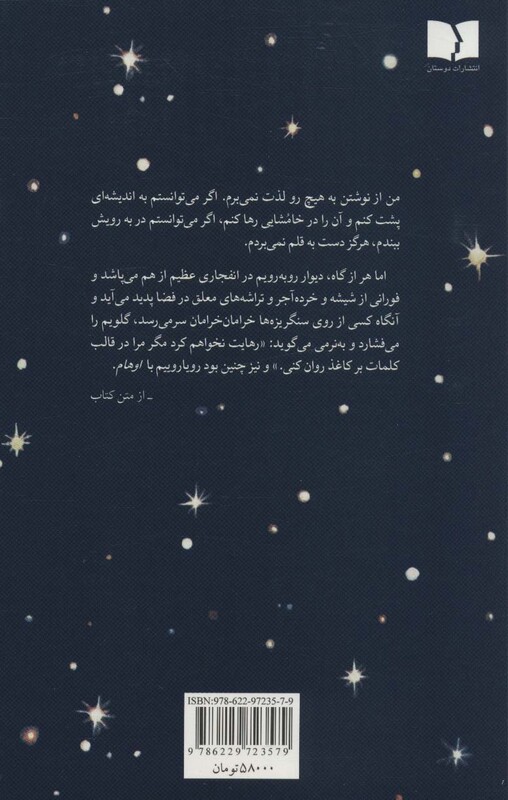 انتشارات دوستان
من از نوشتن به هیچ رو لذت نمی‌برم. اگر می‌توانستم به اندیشه‌ای
پشت کنم و آن را در خامُشایی رها کنم، اگر می‌توانستم در به رویش
ببندم، هرگز دست به قلم نمی‌بردم.
اما هر از گاه، دیوار روبه‌رویم در انفجاری عظیم از هم می‌پاشد و
فورانی از شیشه و خرده‌آجر و تراشه‌های معلق در فضا پدید می‌آید و
آنگاه کسی از روی سنگریزه‌ها خرامان‌خرامان سرمی‌رسد، گلویم را
می‌فشارد و به‌نرمی می‌گوید: «رهایت نخواهم کرد مگر مرا در قالب
کلمات بر کاغذ روان کنی.» و نیز چنین بود رویاروییم با اوهام.
ـ از متن کتاب
ISBN:978-622-97235-7-9
9 786229 723579
۵۸۰۰۰ تومان